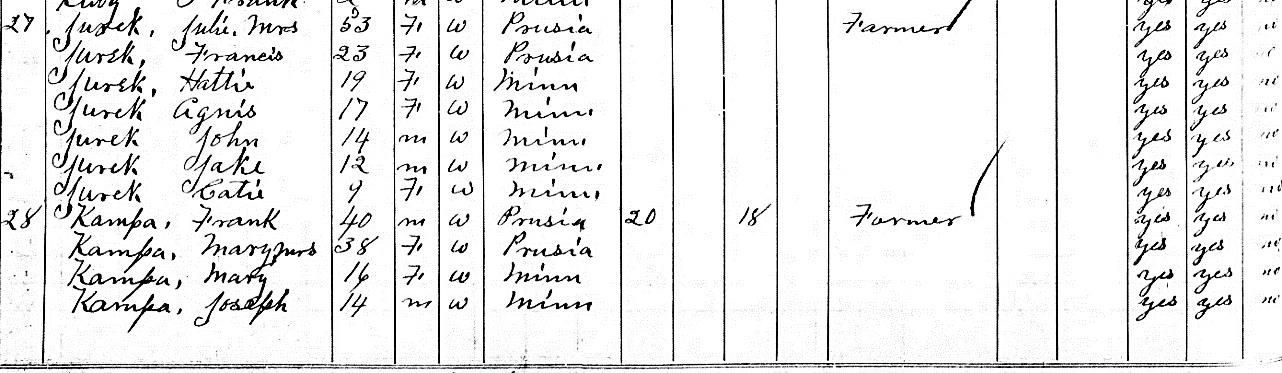 Frank m w Minn yes yes
27 Jurek, Julie, Mrs 53 F. w Prusia Farmer yes yes
Jurek, Francis 23 F. w Prusia yes yes
Jurek, Hattie 19 F. w Minn yes yes
Jurek Agnis 17 F. w Minn. yes yes
Jurek John 14 m w Minn. yes yes
Jurek Jake 12 m w Minn. yes yes
Jurek Catie 9 F. w Minn. yes yes
28 Kampa, Frank 40 m w Prusia 20 18 Farmer yes yes no
Kampa, Mary mrs 38 F. w Prusia yes yes no
Kampa, Mary 16 F. w Minn yes yes no
Kampa, Joseph 14 m w Minn yes yes no